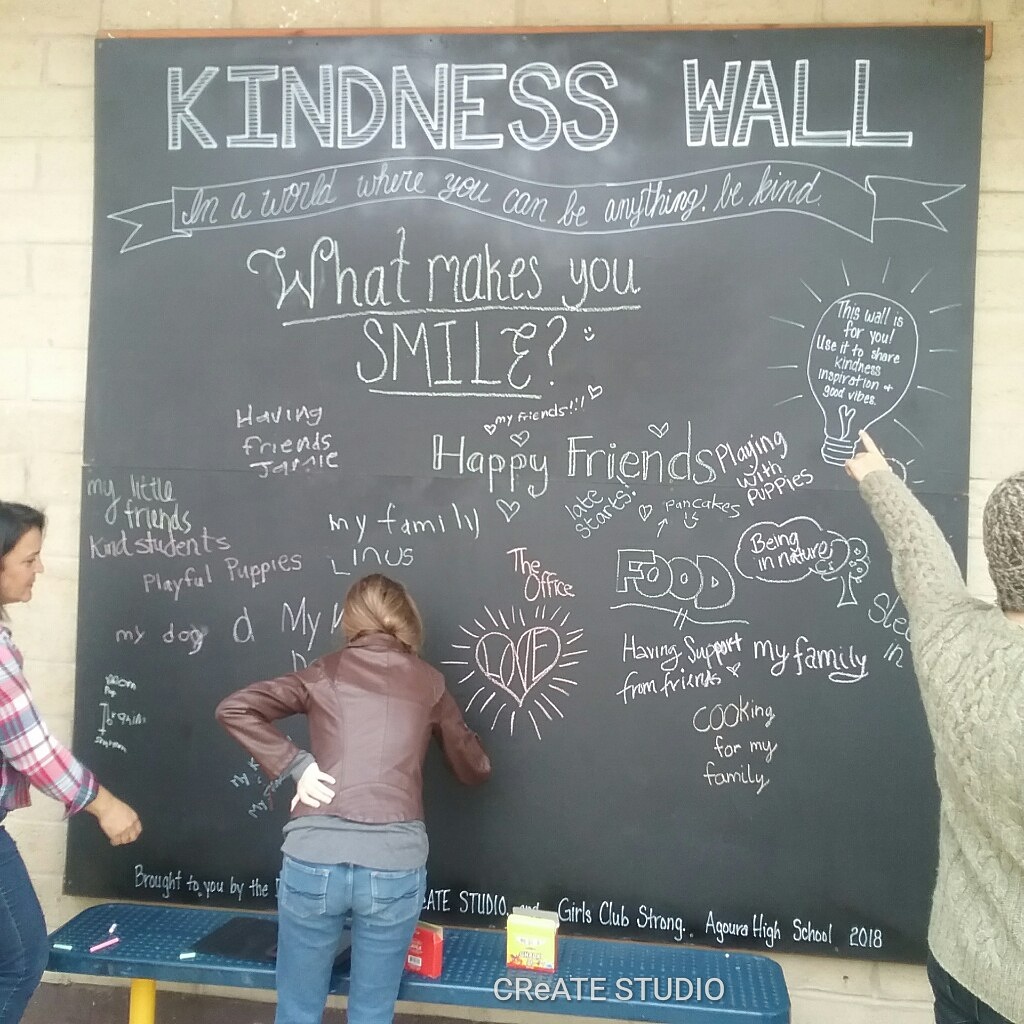 KINDNESS WALL
In a world where you can be anything. be kind.
What makes you
SMILE?
This wall is
for you!
Use it to share
kindness
inspiration +
good vibes.
my friends!!!
Having
friends
Jamie
Happy Friends
Playing
with
Puppies
my little
friends
Kind students
my family
Linus
late
starts!
pancakes
Playful Puppies
The
Office
FOOD
Being
in nature
my dog
d
My
LOVE
Having Support
from friends
my family
in
Mom
COOKing
for my
family
My
Brought to you by the
CReATE STUDIO and Girls Club Strong. Agoura High School 2018
CReATE STUDIO